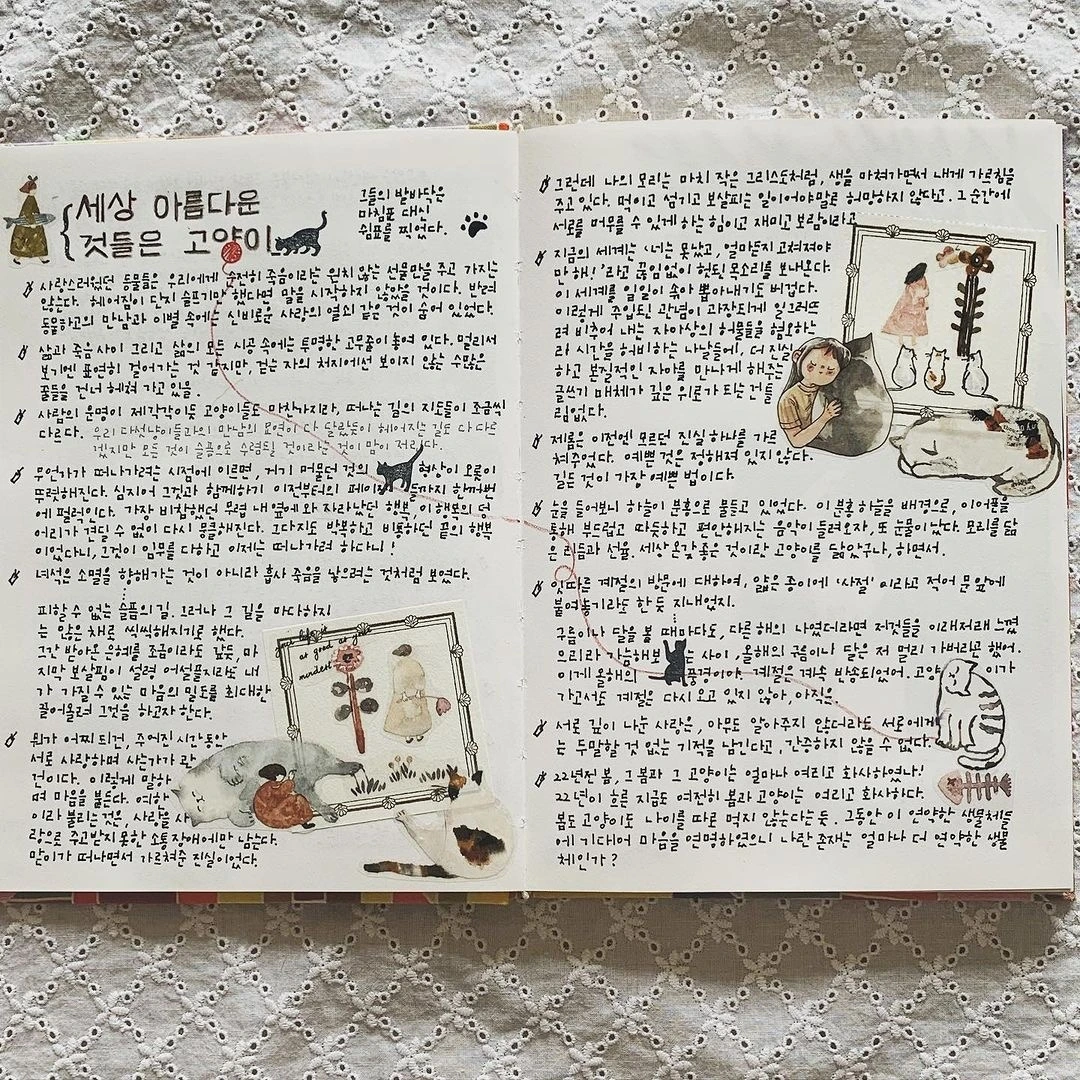 세상 아름다운
것들은 고양이
그들의 발바닥은
마침표 대신
쉼표를 찍었다.
사랑스러웠던 동물들은 우리에게 순전히 죽음이라는 원치 않는 선물만을 주고 가지는
않는다. 헤어짐이 단지 슬프기만 했다면 말을 시작하지 않았을 것이다. 반려
동물하고의 만남과 이별 속에는 신비로운 사랑의 열쇠 같은 것이 숨어 있었다.
삶과 죽음 사이 그리고 삶의 모든 시공 속에는 투명한 고무줄이 놓여 있다. 멀리서
보기엔 표연히 걸어가는 것 같지만, 걷는 자의 처지에선 보이지 않는 수많은
줄들을 건너 헤쳐 가고 있음.
사람의 운명이 제각각이듯 고양이들도 마찬가지라, 떠나는 길의 지도들이 조금씩
다르다. 우리 다섯냥이들과의 만남의 모연이 다 달랐듯이 헤어지는 길도 다 다르
겠지만 모든 것이 슬픔으로 수렴될 것이라는 것이 맘이 저리다.
무언가가 떠나가려는 시점에 이르면, 거기 머물던 것의 형상이 오롯이
뚜렷해진다. 심지어 그것과 함께하기 이전부터의 페이지들까지 한꺼번
에 펄럭인다. 가장 비참했던 무렵 내 옆에 와 자라났던 행복, 이 행복의 덩
어리가 견딜 수 없이 다시 뭉클해진다. 그다지도 박복하고 비통하던 끝의 행복
이었다니, 그것이 임무를 다하고 이제는 떠나가려 하다니!
녀석은 소멸을 향해가는 것이 아니라 흡사 죽음을 낳으려는 것처럼 보였다.
피할 수 없는 슬픔의 길. 그러나 그 길을 마다하지
는 않은 채로 씩씩해지기로 했다.
그간 받아온 은혜를 조금이라도 갚듯, 마
지막 보살핌이 설령 어설플지라도 내
가 가질 수 있는 마음의 밀도를 최대한
끌어올려 그것을 하고자 한다.
뭐가 어찌 되건, 주어진 시간동안
서로 사랑하며 사는가가 관
건이다. 이렇게 말하
며 마음을 붙든다. 여한
이라 불리는 것은, 사랑을 사
랑으로 주고받지 못한 소통 장애에만 남는다.
만이가 떠나면서 가르쳐준 진실이었다.
good life is
at good
mindset
그런데 나의 모리는 마치 작은 그리스도처럼, 생을 마쳐가면서 내게 가르침을
주고 있다. 먹이고 섬기고 보살피는 일이어야말로 허망하지 않다고. 그 순간에
서로를 머무를 수 있게 하는 힘이고 재미고 보람이라고
지금의 세계는 '너는 못났고, 얼마든지 고쳐져야
만 해!'라고 끊임없이 헛된 목소리를 보내온다.
이 세계를 일일이 솎아 뽑아내기도 버겁다.
이렇게 주입된 관념이 과장되게 일그러뜨
려 비추어 내는 자아상의 허물들을 혐오하는
라 시간을 허비하는 나날들에, 더 진실
하고 본질적인 자아를 만나게 해주는
글쓰기 매체가 깊은 위로가 되는 건 틀
림없다.
제롬은 이전엔 모르던 진실 하나를 가르
쳐주었다. 예쁜 것은 정해져 있지 않다.
길든 것이 가장 예쁜 법이다.
눈을 들어보니 하늘이 분홍으로 물들고 있었다. 이 분홍 하늘을 배경으로, 이어폰을
통해 부드럽고 따듯하고 편안해지는 음악이 들려오자, 또 눈물이 났다. 모리를 닮
은 리듬과 선율. 세상 온갖 좋은 것이란 고양이를 닮았구나, 하면서.
잇따른 계절의 방문에 대하여, 얇은 종이에 '사절'이라고 적어 문 앞에
붙여놓기라도 한 듯 지내었지.
구름이나 달을 볼 때마다도, 다른 해의 나였더라면 저것들을 이래저래 느꼈
으리라 가늠해보는 사이, 올해의 구름이나 달은 저 멀리 가버리곤 했어.
이게 올해의 풍경이야. 계절을 계속 반송되었어. 고양이가
가고서도 계절은 다시 오고 있지 않아, 아직은.
서로 깊이 나눈 사랑은, 아무도 알아주지 않더라도 서로에게
는 두말할 것 없는 기적을 남긴다고, 간증하지 않을 수 없다.
22년전 봄, 그 봄과 그 고양이는 얼마나 여리고 화사하였나!
22년이 흐른 지금도 여전히 봄과 고양이는 여리고 화사하다.
봄도 고양이도 나이를 따로 먹지 않는다는 듯. 그동안 이 연약한 생물체들
에 기대어 마음을 연명하였으니 나란 존재는 얼마나 더 연약한 생물
체인가?